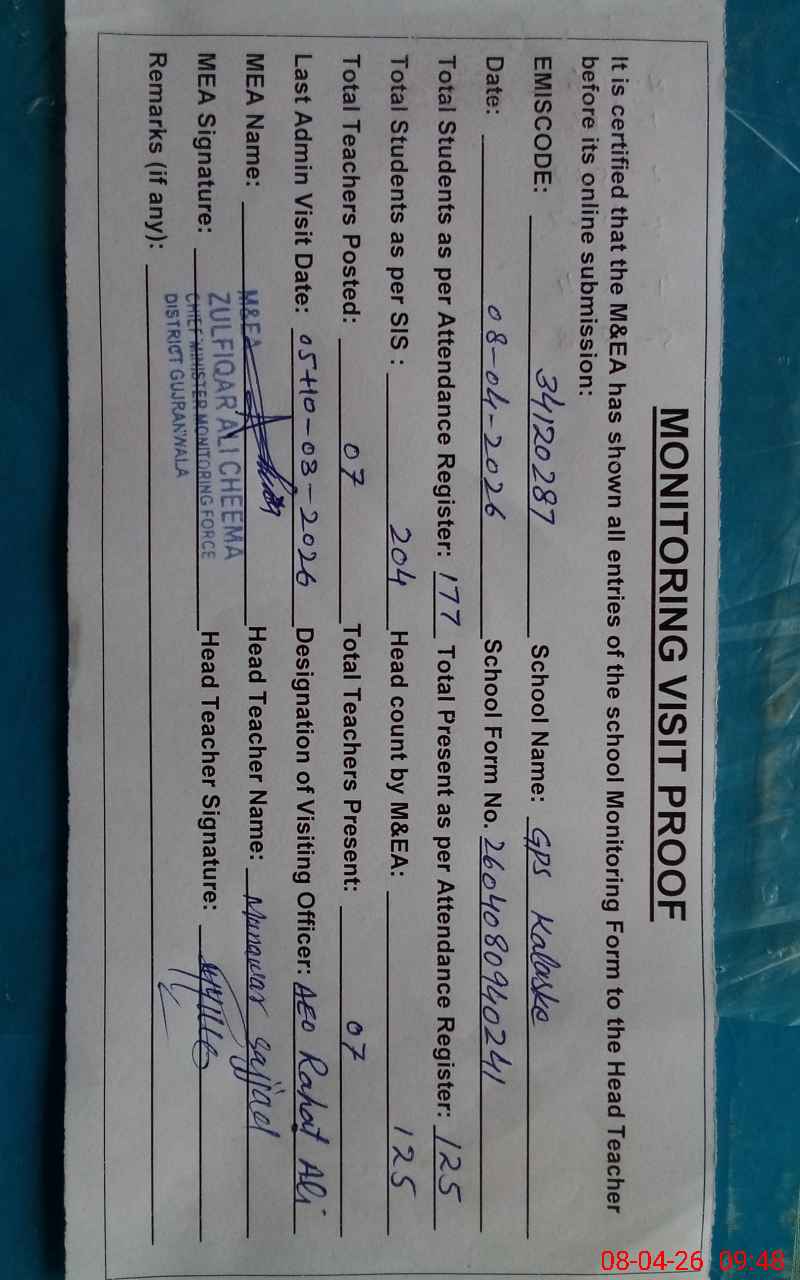 MONITORING VISIT PROOF
It is certified that the M&EA has shown all entries of the school Monitoring Form to the Head Teacher
before its online submission:
EMISCODE: 34120287 School Name: GPS Kalaske
Date: 08-04-2026 School Form No. 2604080940241
Total Students as per Attendance Register: 177 Total Present as per Attendance Register: 125
Total Students as per SIS : 204 Head count by M&EA: 125
Total Teachers Posted: 07 Total Teachers Present: 07
Last Admin Visit Date: 05-03-2026 Designation of Visiting Officer: AEO Rahat Ali
MEA Name: M&EA Head Teacher Name: Munawar Sajjad
ZULFIQAR ALI CHEEMA
MEA Signature: CHIEF MINISTER MONITORING FORCE Head Teacher Signature:
DISTRICT GUJRANWALA
Remarks (if any):
08-04-26 09:48